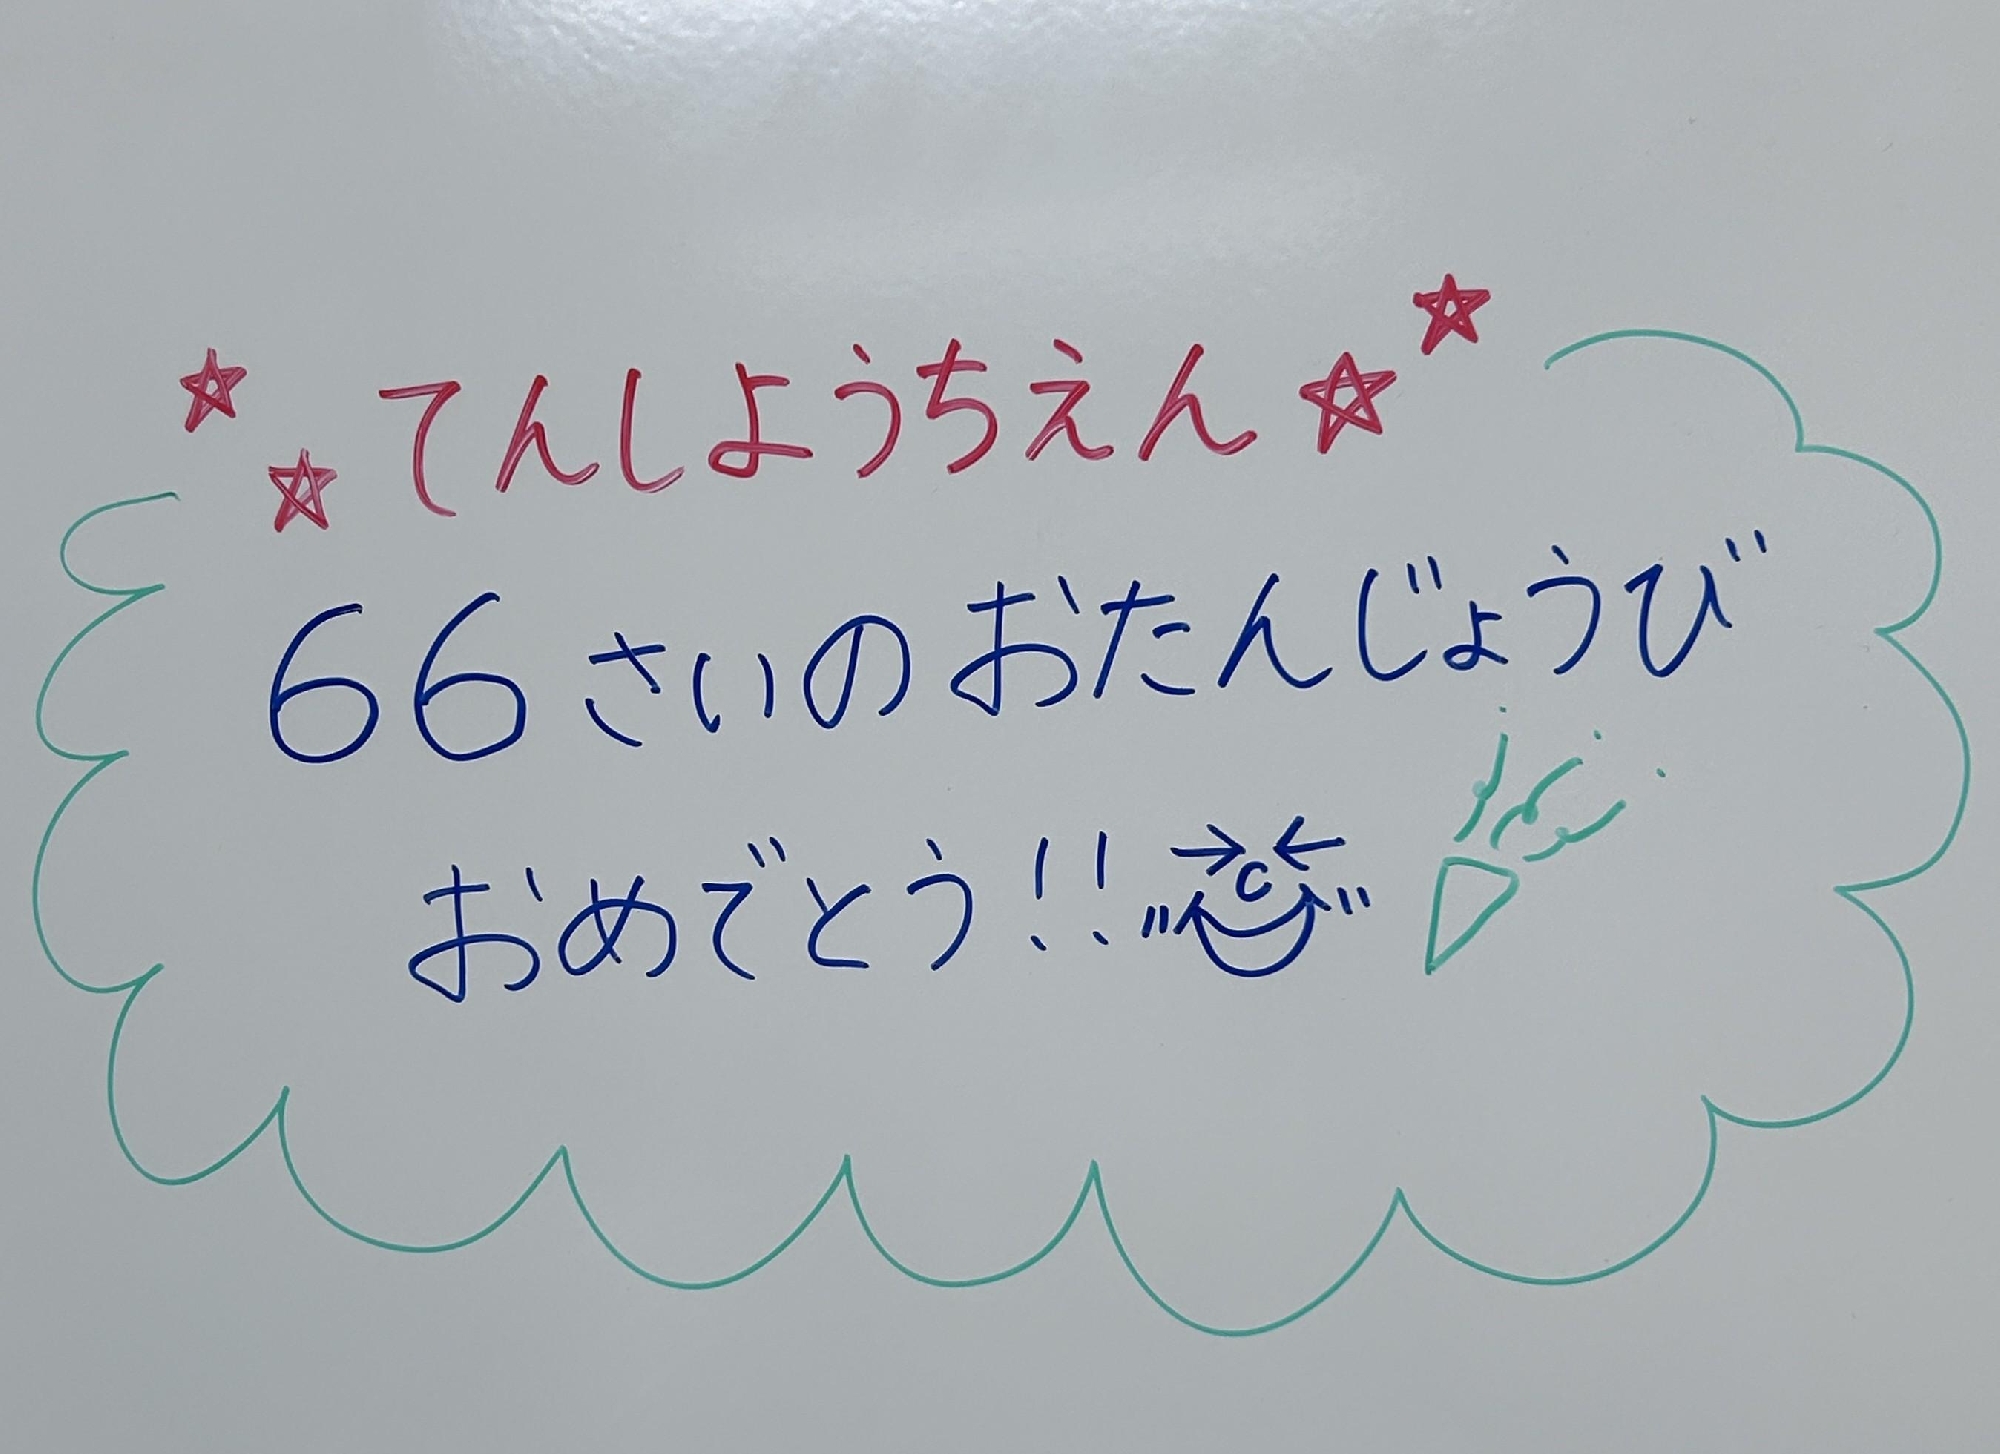 てんしようちえん
66さいのおたんじょうび
おめでとう!!